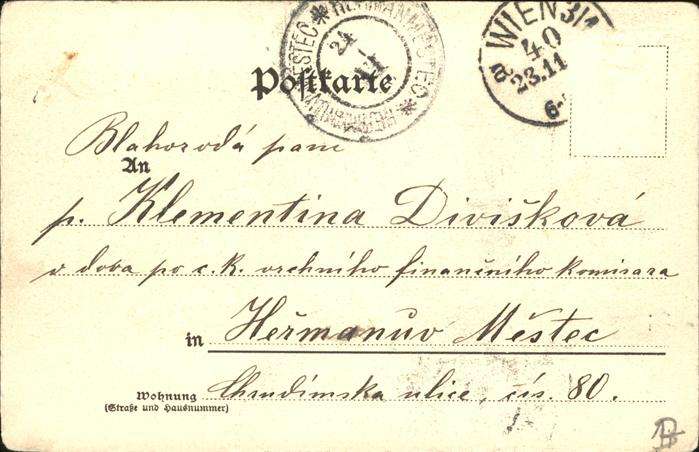 HEŘMANMĚSTEC * HERMANNMĚSTEC *
24
WIEN 3/1
40
23.11
6-
Postkarte
Blahorodá paní
An
p. Klementina Divišková
vdova po c. k. vrchního finančního komisara
in Heřmanův Městec
Wohnung Chrudimska ulice, čís. 80.
(Straße und Hausnummer)